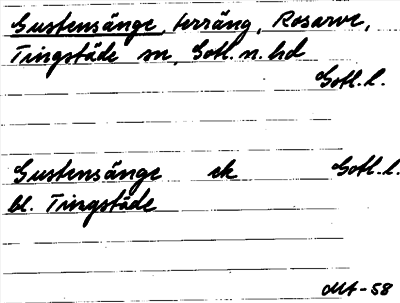 Gustensänge, terräng, Rosarve,
Tingstäde sn, Gotl. n. hd
Gotl. l.
Gustensänge ek Gotl. l.
bl. Tingstäde
MA-58